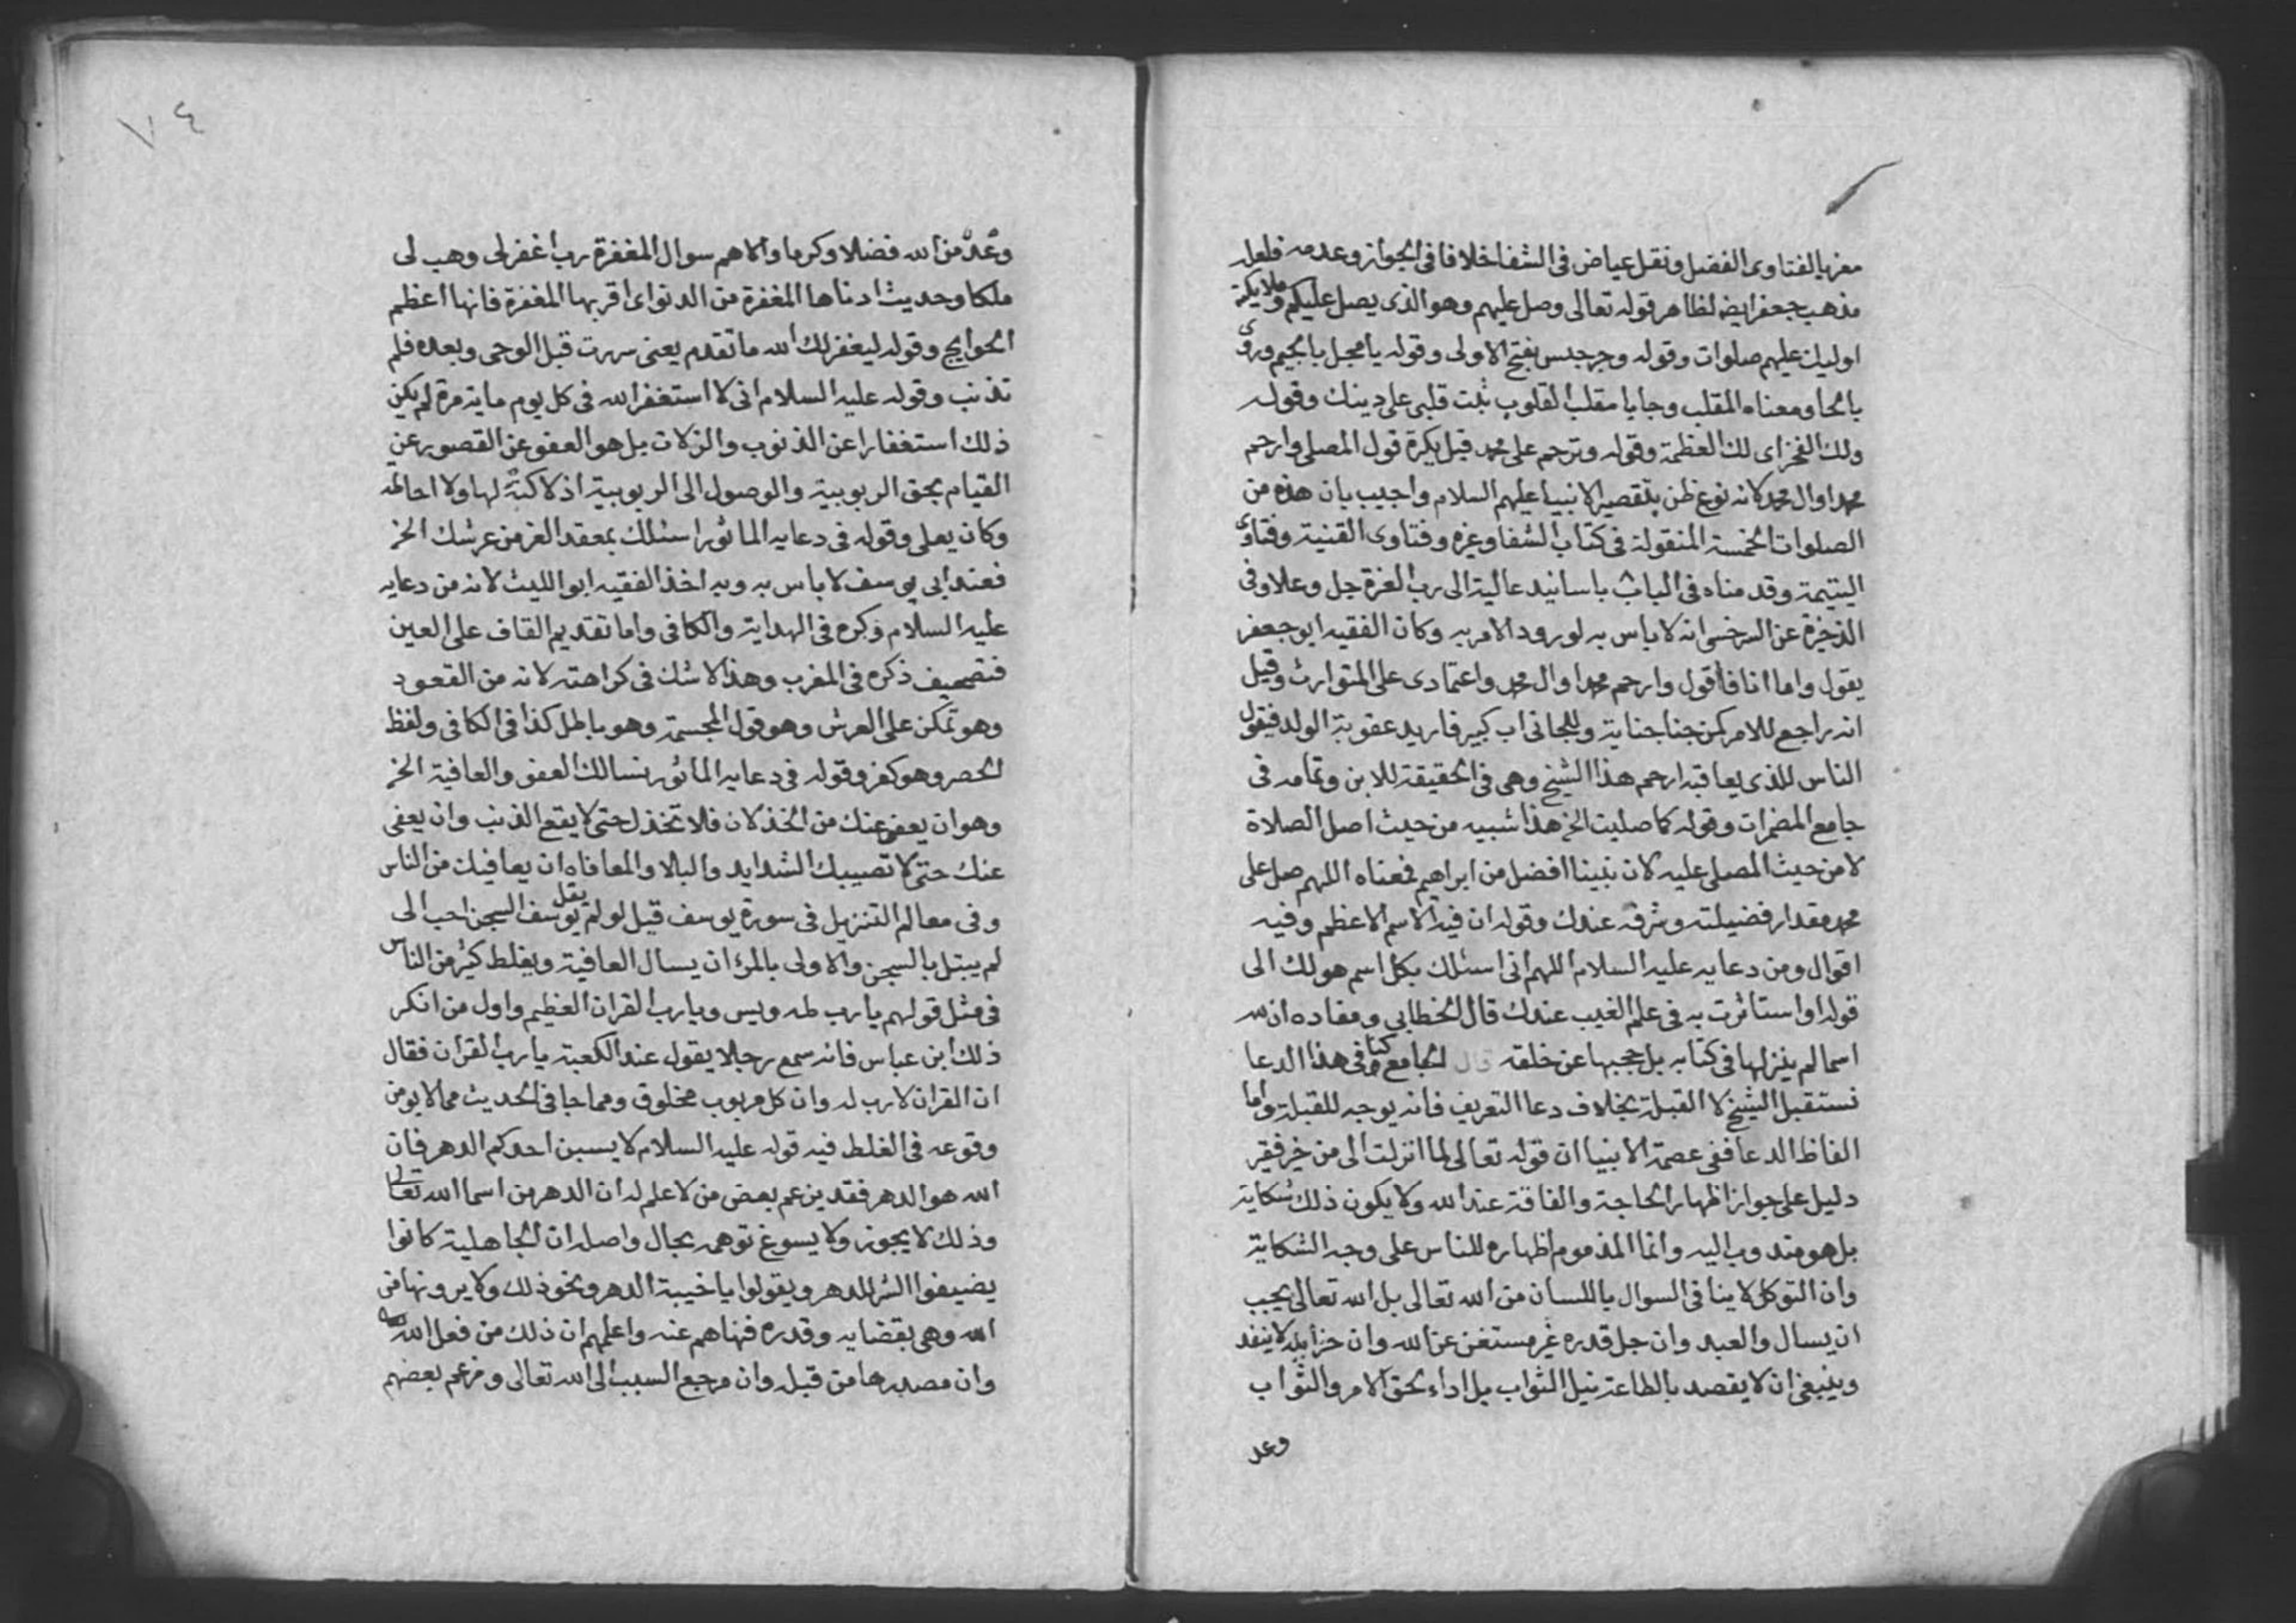 معزيا لفتاوى الفضل ونقل عياض فى الشفا خلافا فى الجواز وعدمه فلعله
مذهب جعفر ايضا لظاهر قوله تعالى وصل عليهم وهو الذى يصل عليكم وملايكته
اوليك عليهم صلوات وقوله وجرجيس بفتح الاولى وقوله يا مجل بالجيم وروى
بالحا ومعناه المقلب وجا يا مقلب القلوب ثبت قلبى على دينك وقوله
ولك الفخر اى لك العظمة وقوله وترحم على محمد قيل يكره قول المصلى وارحم
محمدا وال محمد لانه نوع ظن بتقصير الانبيا عليهم السلام واجيب بان هذه من
الصلوات الخمسة المنقولة فى كتاب الشفا وغيره وفتاوى القنية وفتاوى
اليتيمة وقدمناه فى الباب باسانيد عالية الى رب العزة جل وعلا وفى
الذخيرة عن السرخسى انه لا باس به لورود الامر به وكان الفقيه ابو جعفر
يقول واما انا فاقول وارحم محمدا وال محمد واعتمادى على المتوارث وقيل
انه راجع للامر كمن جنا جناية وللجانى اب كبير فاريد عقوبة الولد فيقول
الناس للذى يعاقبه ارحم هذا الشيخ وهى فى الحقيقة للابن وتمامه فى
جامع المضمرات وقوله كما صليت الخ هذا شبيه من حيث اصل الصلاة
لا من حيث المصلى عليه لان نبينا افضل من ابراهيم فمعناه اللهم صل على
محمد مقدار فضيلته وشرفه عندك وقوله ان فيه الاسم الاعظم وفيه
اقوال ومن دعايه عليه السلام اللهم انى اسئلك بكل اسم هو لك الى
قوله او استاثرت به فى علم الغيب عندك قال الخطابى ومفاده ان لله
اسما لم ينزلها فى كتابه بل حجبها عن خلقه قال كتا الجامع وفى هذا الدعا
نستقبل الشيخ لا القبلة بخلاف دعا التعريف فانه يوجه للقبلة واما
الفاظ الدعا ففى عصمة الانبيا ان قوله تعالى لما انزلت الى من خير فقير
دليل على جواز اظهار الحاجة والفاقة عند الله ولا يكون ذلك شكاية
بل هو مندوب اليه وانما المذموم اظهاره للناس على وجه الشكاية
وان التوكل لا ينافى السوال باللسان من الله تعالى بل الله تعالى يحب
ان يسال والعبد وان جل قدره غير مستغن عن الله وان خزاينه لا ينفد
وينبغى ان لا يقصد بالطاعة نيل الثواب بل اداء لحق الامر والثواب
وعد
٧٤
وعد من الله فضلا وكرما والاهم سوال المغفرة رب اغفر لى وهب لى
ملكا وحديث ادناها المغفرة من الدنو اى اقربها المغفرة فانها اعظم
الحوايج وقوله ليغفر لك الله ما تقدم يعنى سهرت قبل الوحى وبعده فلم
تذنب وقوله عليه السلام انى لا استغفر الله فى كل يوم ماية مرة لم يكن
ذلك استغفارا عن الذنوب والزلات بل هو العفو عن القصور عن
القيام بحق الربوبية والوصول الى الربوبية اذ لا كنه لها ولا احاطه
وكان يعلى وقوله فى دعايه الماثور اسئلك بمعقد العز من عرشك الخ
فعند ابى يوسف لا باس به وبه اخذ الفقيه ابو الليث لانه من دعايه
عليه السلام ذكره فى الهداية والكافى واما تقديم القاف على العين
فتصحيف ذكره فى المغرب وهذا لا شك فى كراهته لانه من القعود
وهو تمكن على العرش وهو قول المجسمة وهو باطل كذا فى الكافى ولفظ
الحصر وهو كفر وقوله فى دعايه الماثور نسالك العفو والعافية الخ
وهو ان يعفى عنك من الخذلان فلا تخذل حتى لا يقع الذنب وان يعفى
عنك حتى لا تصيبك الشدايد والبلا والمعافاه ان يعافيك من الناس
وفى معالم التنزيل فى سورة يوسف قيل لو لم يقل يوسف السجن احب الى
لم يبتل بالسجن والاولى بالمرء ان يسال العافية ويغلط كثير من الناس
فى مثل قولهم يا رب طه ويس ويا رب القران العظيم واول من انكر
ذلك ابن عباس فانه سمع رجلا يقول عند الكعبة يا رب القران فقال
ان القران لا رب له وان كل مربوب مخلوق ومما جا فى الحديث مما لا يومن
وقوعه فى الغلط فيه قوله عليه السلام لا يسبن احدكم الدهر فان
الله هو الدهر فقد يزعم بعض من لا علم له ان الدهر من اسما الله تعالى
وذلك لا يجوز ولا يسوغ توهمه بحال واصله ان الجاهلية كانوا
يضيفوا الشر للدهر ويقولوا يا خيبة الدهر ونحو ذلك ولا يرونها من
الله وهى بقضايه وقدره فنهاهم عنه واعلمهم ان ذلك من فعل الله
وان مصدرها من قبله وان مرجع السبب الى الله تعالى وزعم بعضهم